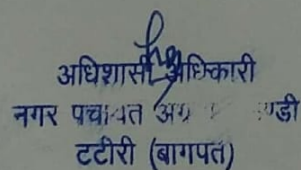 अधिशासी अधिकारी
नगर पचायत
टटीरी (बागपत)